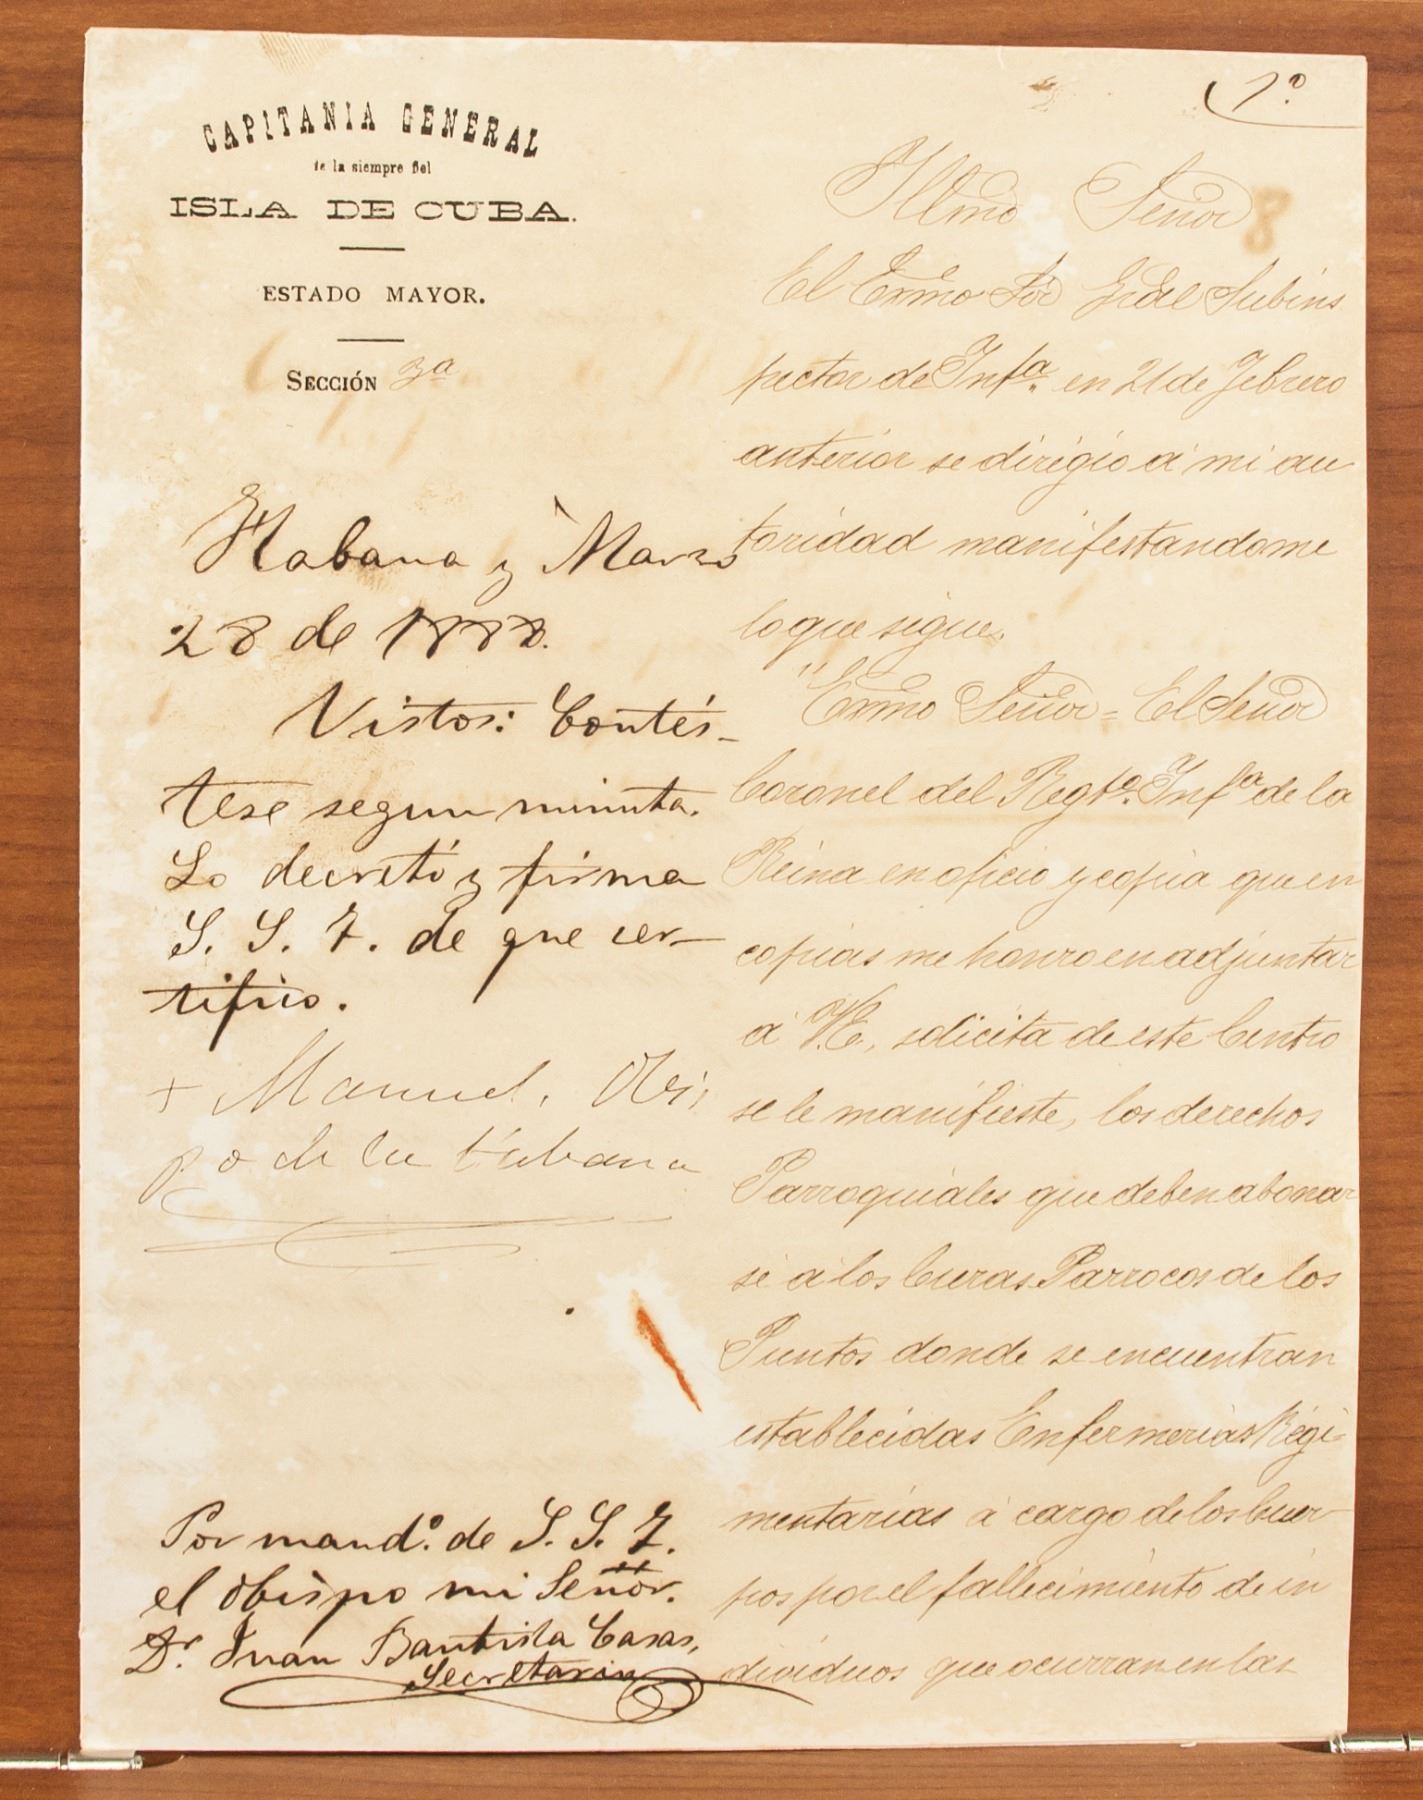 1º
CAPITANIA GENERAL
de la siempre fiel
ISLA DE CUBA.
ESTADO MAYOR.
SECCIÓN 3ª
Habana y Marzo
28 de 1888.
Vistos: Contés-
tese segun minuta.
Lo decretó y firma
S. S. I. de que cer-
tifico.
+ Manuel, Obis
po de la Habana
Por mandº. de S. S. I.
el obispo mi Señor.
Dr. Juan Bautista Casas,
Secretario
Illmo Señor
8
El Exmo Sor Gral Subins
pector de Infª. en 21 de Febrero
anterior se dirigió á mi au
toridad manifestandome
lo que sigue.
"Exmo Señor = El Señor
Coronel del Regtº. Infª de la
Reina en oficio y copia que en
copias me honro en adjuntar
á V.E., solicita de este Centro
se le manifieste, los derechos
Parroquiales que deben abonar
se á los Curas Parrocos de los
Puntos donde se encuentran
establecidas Enfermerias Regi-
mentarias á cargo de los Cuer
pos por el fallecimiento de in
dividuos que ocurran en las